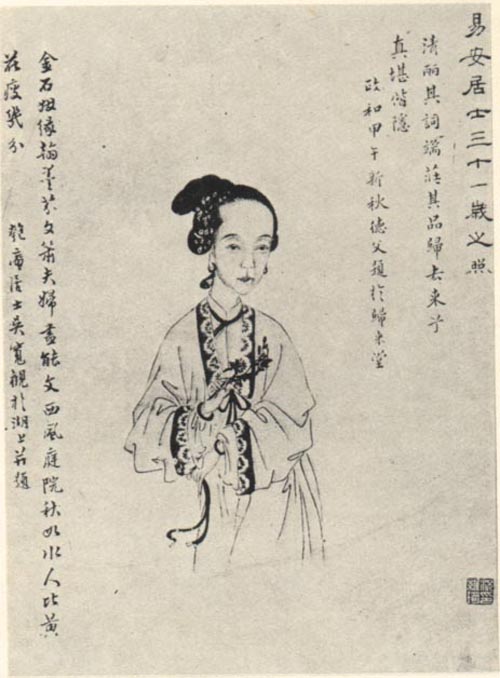 易安居士三十一歲之照
清麗其詞端莊其品歸去來兮
真堪偕隱
政和甲午新秋德父題於歸來堂
金石姻緣翰墨芬文簫夫婦盡能文西風庭院秋如水人比黃
花瘦幾分 匏庵居士吳寬觀於湖上題